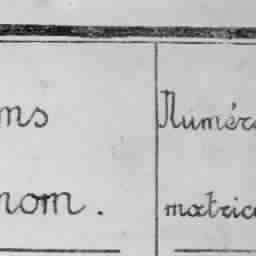 ms
nom.
Numéro
matric